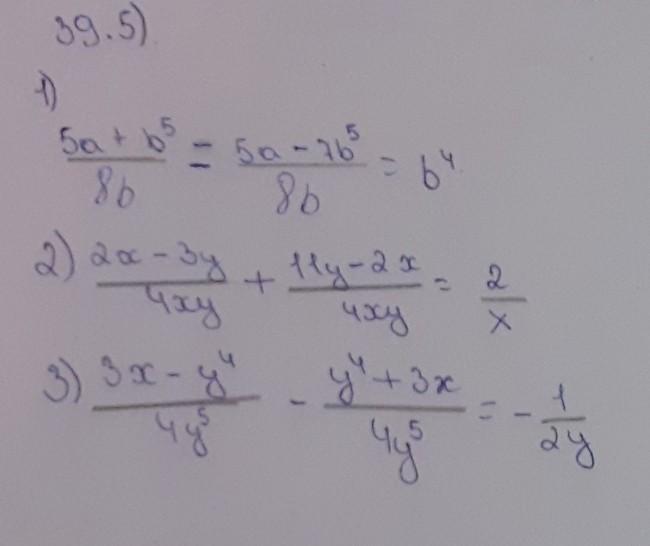 39.5)
1)
(5a + b⁵)/(8b) = (5a - 7b⁵)/(8b) = b⁴
2) (2x - 3y)/(4xy) + (11y - 2x)/(4xy) = 2/x
3) (3x - y⁴)/(4y⁵) - (y⁴ + 3x)/(4y⁵) = - 1/(2y)